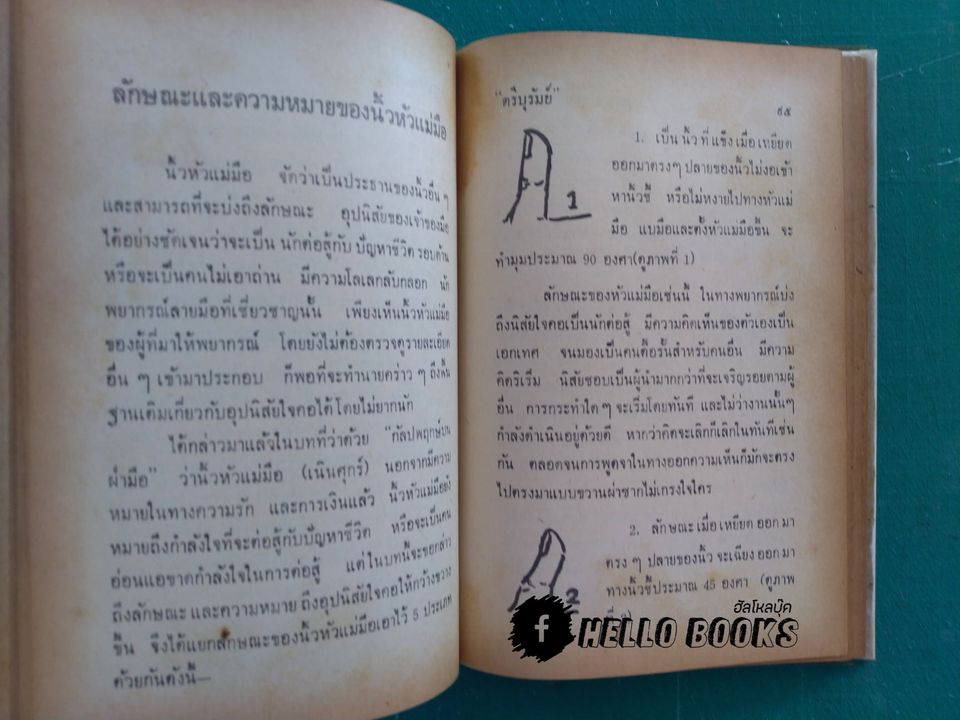 ลักษณะและความหมายของนิ้วหัวแม่มือ
นิ้วหัวแม่มือ จัดว่าเป็นประธานของนิ้วอื่น ๆ
และสามารถที่จะบ่งถึงลักษณะ อุปนิสัยของเจ้าของมือ
ได้อย่างชัดเจนว่าจะเป็น นักต่อสู้กับ ปัญหาชีวิต รอบด้าน
หรือจะเป็นคนไม่เอาถ่าน มีความโลเลกลับกลอก นัก
พยากรณ์ลายมือที่เชี่ยวชาญนั้น เพียงเห็นนิ้วหัวแม่มือ
ของผู้ที่มาให้พยากรณ์ โดยยังไม่ต้องตรวจดูรายละเอียด
อื่น ๆ เข้ามาประกอบ ก็พอที่จะทำนายคร่าว ๆ ถึงพื้น
ฐานเดิมเกี่ยวกับอุปนิสัยใจคอได้ โดยไม่ยากนัก
ได้กล่าวมาแล้วในบทที่ว่าด้วย "กัลปพฤกษ์บน
ฝ่ามือ" ว่านิ้วหัวแม่มือ (เนินศุกร์) นอกจากมีความ
หมายในทางความรัก และการเงินแล้ว นิ้วหัวแม่มือยัง
หมายถึงกำลังใจที่จะต่อสู้กับปัญหาชีวิต หรือจะเป็นคน
อ่อนแอขาดกำลังใจในการต่อสู้ แต่ในบทนี้จะขอกล่าว
ถึงลักษณะ และความหมาย ถึงอุปนิสัยใจคอให้กว้างขวาง
ขึ้น จึงได้แยกลักษณะของนิ้วหัวแม่มือเอาไว้ 5 ประเภท
ด้วยกันดังนี้—
"ตรีบุรัมย์"
๙๕
1. เป็น นิ้ว ที่ แข็ง เมื่อ เหยียด
ออกมาตรงๆ ปลายของนิ้วไม่งอเข้า
หานิ้วชี้ หรือไม่หงายไปทางหัวแม่
มือ แบมือและตั้งหัวแม่มือขึ้น จะ
ทำมุมประมาณ 90 องศา(ดูภาพที่ 1)
1
ลักษณะของหัวแม่มือเช่นนี้ ในทางพยากรณ์บ่ง
ถึงนิสัยใจคอเป็นนักต่อสู้ มีความคิดเห็นของตัวเองเป็น
เอกเทศ จนมองเป็นคนดื้อรั้นสำหรับคนอื่น มีความ
คิดริเริ่ม นิสัยชอบเป็นผู้นำมากกว่าที่จะเจริญรอยตามผู้
อื่น การกระทำใดๆ จะเริ่มโดยทันที และไม่ว่างานนั้นๆ
กำลังดำเนินอยู่ด้วยดี หากว่าคิดจะเลิกก็เลิกในทันทีเช่น
กัน ตลอดจนการพูดจาในทางออกความเห็นก็มักจะตรง
ไปตรงมาแบบขวานผ่าซากไม่เกรงใจใคร
2. ลักษณะ เมื่อ เหยียด ออก มา
ตรง ๆ ปลายของนิ้ว จะเฉียง ออก มา
ทางนิ้วชี้ประมาณ 45 องศา (ดูภาพ
2
ฮัลโหลบุ๊ค
HELLO BOOKS